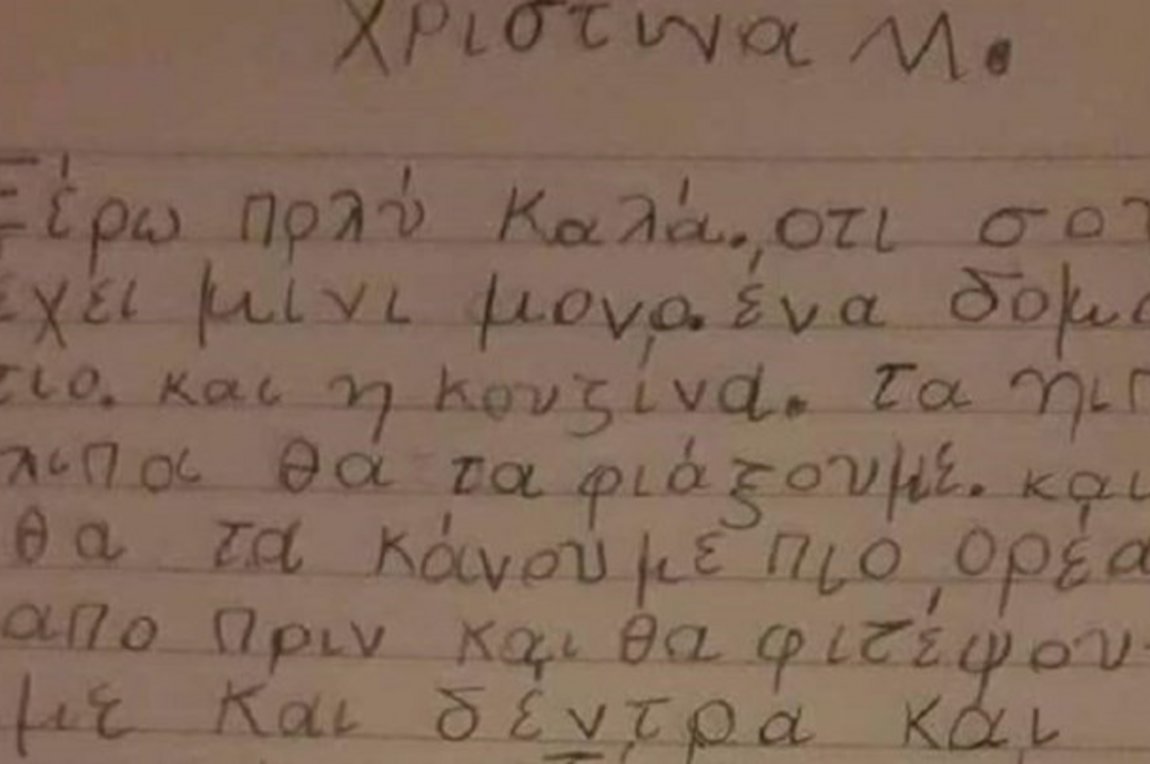 Χριστινα Μ.
Ξέρω πολύ Καλά., οτι σου
έχει μίνι μονο. ένα δομά
τιο. και η κουζίνα. τα ηπ
λιποι θα τα φιάξουμέ. και
θα τα κάνουμε πιο, ορέα
απο πριν και θα φιτέψου-
με Και δέντρα και